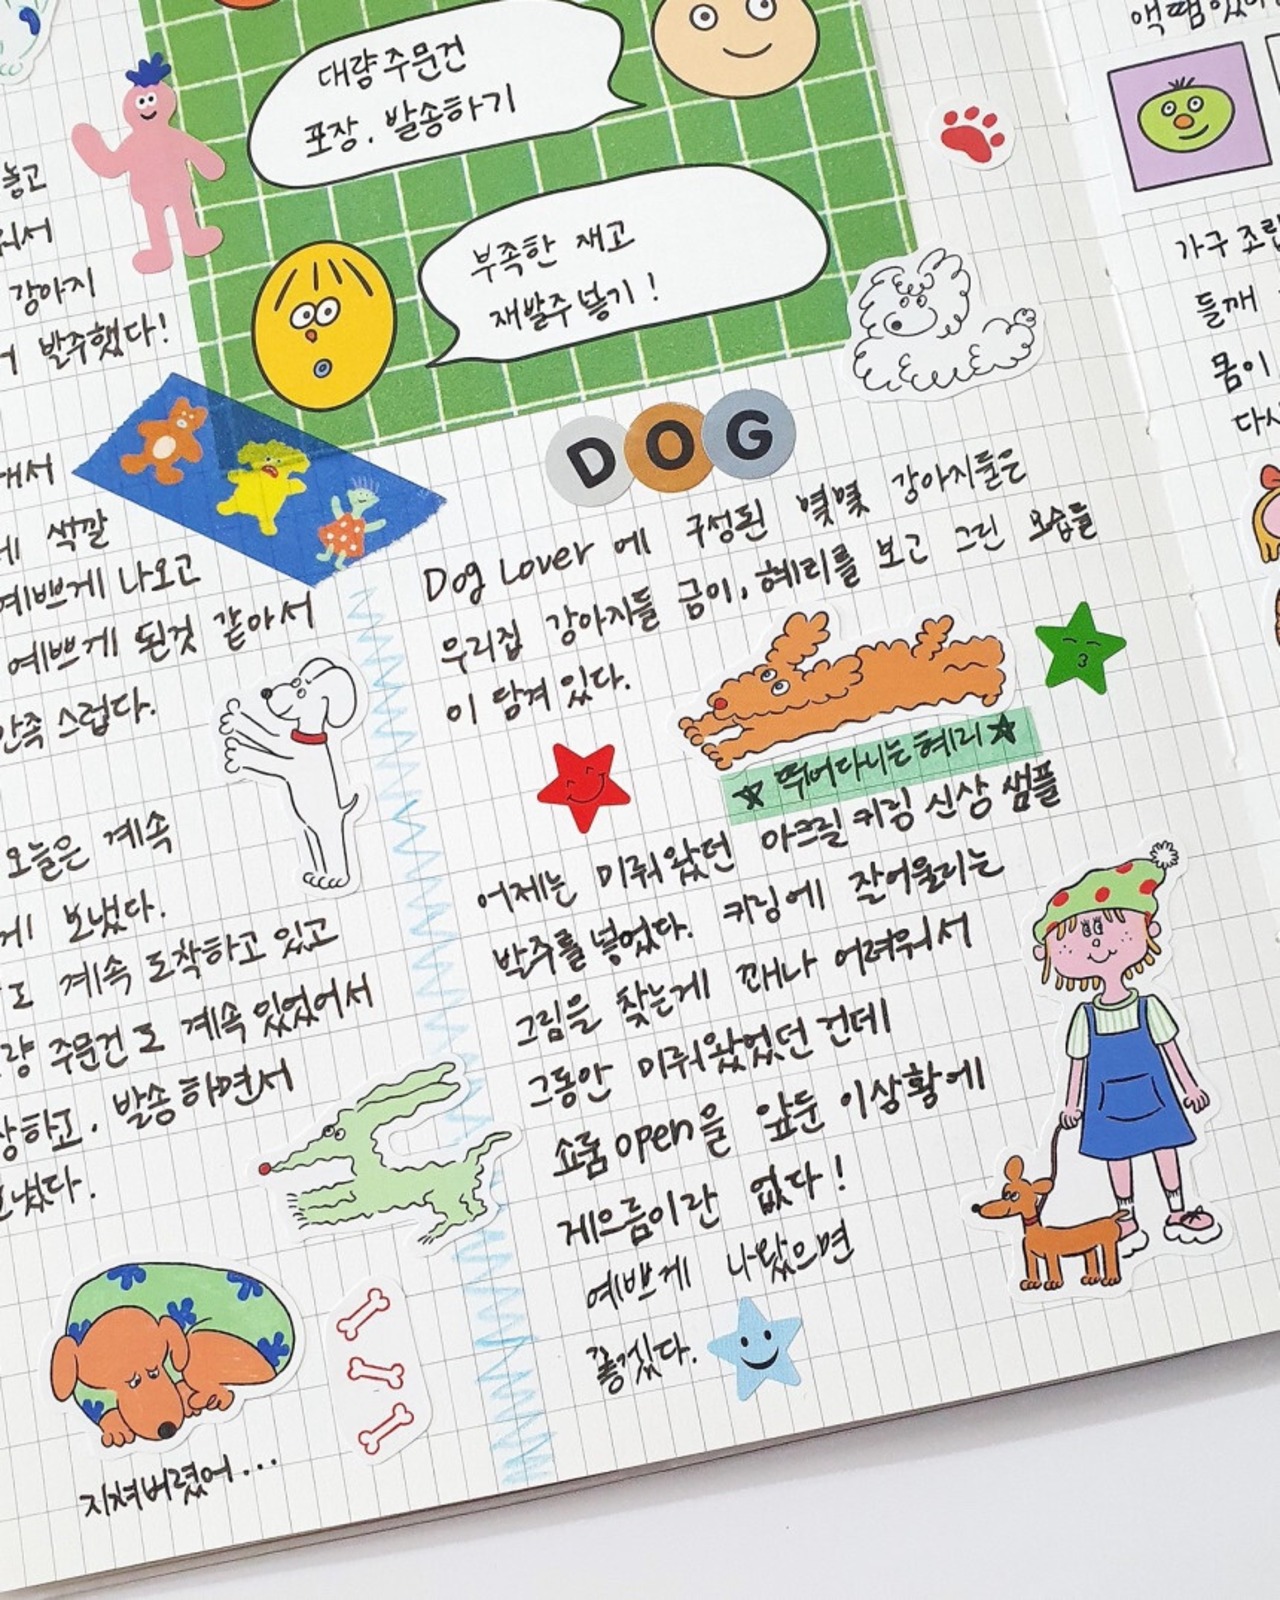 대량 주문건
포장, 발송하기
부족한 재고
재발주 넣기!
놓고
강아지
발주했다!
색깔
예쁘게 나오고
예쁘게 된것 같아서
만족스럽다.
오늘은 계속
보냈다.
도 계속 도착하고 있고
주문건도 계속 있었어서
하고, 발송하면서
보냈다.
지쳐버렸어...
DOG
Dog Lover에 구성된 몇몇 강아지들은
우리집 강아지들 금이, 혜리를 보고 그린 모습들
이 담겨 있다.
☆ 뛰어다니는 혜리 ☆
어제는 미뤄왔던 아크릴 키링 신상 샘플
발주를 넣었다. 키링에 잘어울리는
그림을 찾는게 꽤나 어려워서
그동안 미뤄왔었던 건데
쇼룸 open을 앞둔 이상황에
게으름이란 없다!
예쁘게 나왔으면
좋겠다.
가구 조립
들깨
몸이
다시